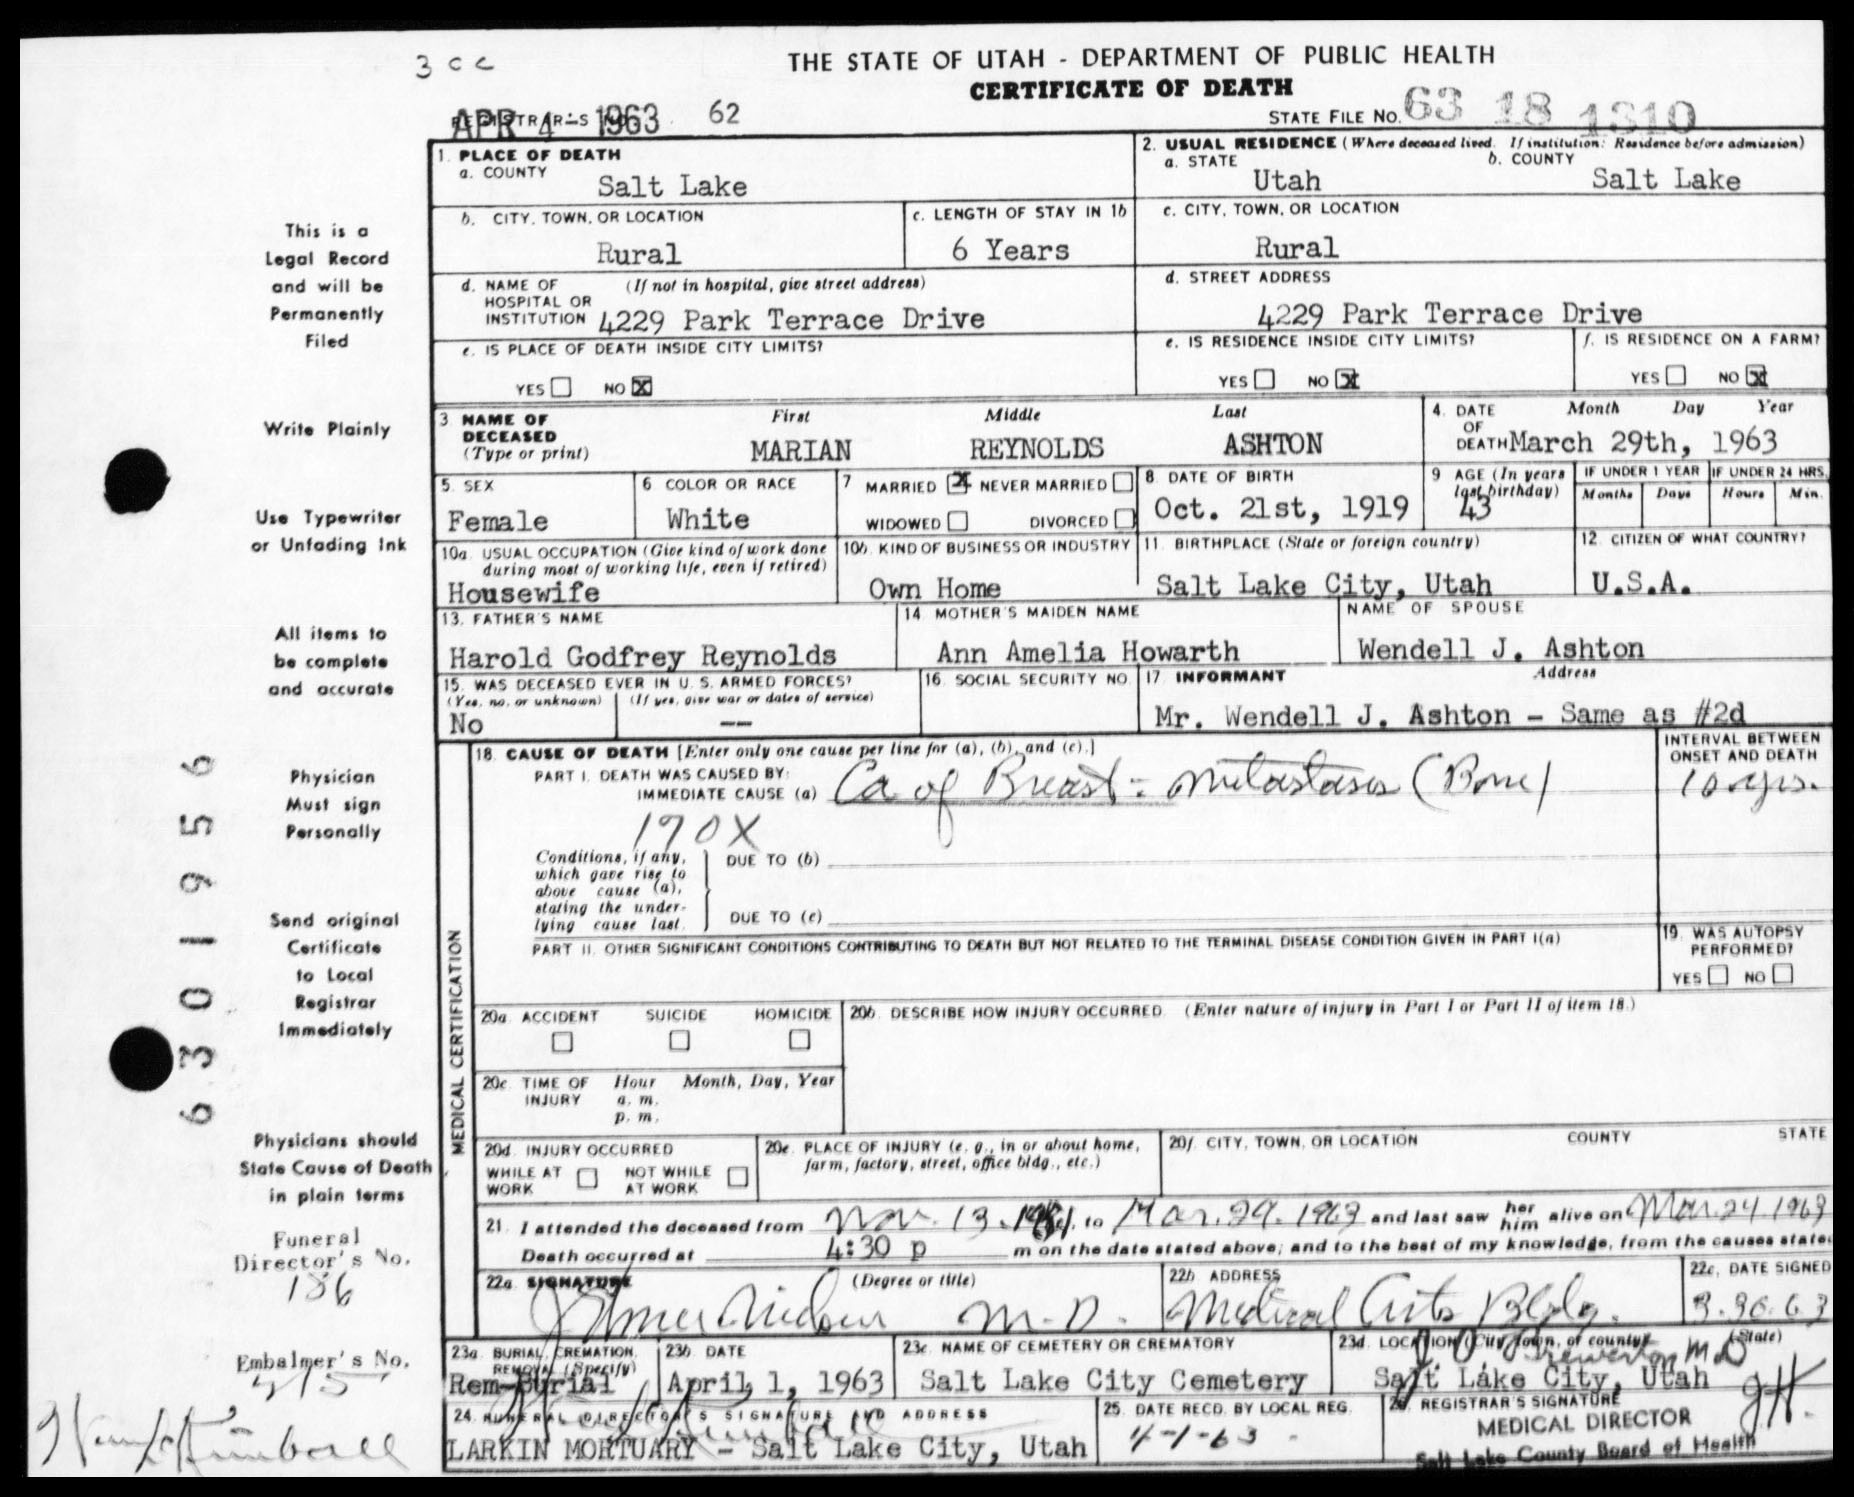 3 c c
THE STATE OF UTAH - DEPARTMENT OF PUBLIC HEALTH
CERTIFICATE OF DEATH
REGISTRAR'S NO. 62
APR 4 - 1963
STATE FILE NO. 63 18 1310
1. PLACE OF DEATH
a. COUNTY
Salt Lake
2. USUAL RESIDENCE (Where deceased lived. If institution: Residence before admission)
a. STATE
Utah
b. COUNTY
Salt Lake
b. CITY, TOWN, OR LOCATION
Rural
c. LENGTH OF STAY IN 1b
6 Years
c. CITY, TOWN, OR LOCATION
Rural
d. NAME OF HOSPITAL OR INSTITUTION
(If not in hospital, give street address)
4229 Park Terrace Drive
d. STREET ADDRESS
4229 Park Terrace Drive
e. IS PLACE OF DEATH INSIDE CITY LIMITS?
YES NO X
e. IS RESIDENCE INSIDE CITY LIMITS?
YES NO X
f. IS RESIDENCE ON A FARM?
YES NO X
3. NAME OF DECEASED
(Type or print)
First Middle Last
MARIAN REYNOLDS ASHTON
4. DATE OF DEATH
Month Day Year
March 29th, 1963
5. SEX
Female
6 COLOR OR RACE
White
7 MARRIED X NEVER MARRIED
WIDOWED DIVORCED
8. DATE OF BIRTH
Oct. 21st, 1919
9 AGE (In years last birthday)
43
IF UNDER 1 YEAR
Months Days
IF UNDER 24 HRS.
Hours Min.
10a. USUAL OCCUPATION (Give kind of work done during most of working life, even if retired)
Housewife
10b. KIND OF BUSINESS OR INDUSTRY
Own Home
11. BIRTHPLACE (State or foreign country)
Salt Lake City, Utah
12. CITIZEN OF WHAT COUNTRY?
U.S.A.
13. FATHER'S NAME
Harold Godfrey Reynolds
14 MOTHER'S MAIDEN NAME
Ann Amelia Howarth
NAME OF SPOUSE
Wendell J. Ashton
15. WAS DECEASED EVER IN U. S. ARMED FORCES?
(Yes, no, or unknown) (If yes, give war or dates of service)
No --
16. SOCIAL SECURITY NO.
17 INFORMANT Address
Mr. Wendell J. Ashton - Same as #2d
MEDICAL CERTIFICATION
18. CAUSE OF DEATH [Enter only one cause per line for (a), (b), and (c).]
PART I. DEATH WAS CAUSED BY:
IMMEDIATE CAUSE (a) Ca of Breast - metastases (Bone)
INTERVAL BETWEEN ONSET AND DEATH
10 yrs.
170X
Conditions, if any, which gave rise to above cause (a), stating the underlying cause last.
DUE TO (b)
DUE TO (c)
PART II. OTHER SIGNIFICANT CONDITIONS CONTRIBUTING TO DEATH BUT NOT RELATED TO THE TERMINAL DISEASE CONDITION GIVEN IN PART I(a)
19. WAS AUTOPSY PERFORMED?
YES NO
20a. ACCIDENT SUICIDE HOMICIDE
20b. DESCRIBE HOW INJURY OCCURRED. (Enter nature of injury in Part I or Part II of item 18.)
20c. TIME OF INJURY
Hour Month, Day, Year
a. m.
p. m.
20d. INJURY OCCURRED
WHILE AT WORK NOT WHILE AT WORK
20e. PLACE OF INJURY (e. g., in or about home, farm, factory, street, office bldg., etc.)
20f. CITY, TOWN, OR LOCATION COUNTY STATE
21. I attended the deceased from Nov. 13, to Mar. 29. 1963 and last saw her him alive on Mar. 24 1963
Death occurred at 4:30 p m on the date stated above; and to the best of my knowledge, from the causes state
22a. SIGNATURE (Degree or title)
M. D.
22b. ADDRESS
Medical Arts Bldg.
22c. DATE SIGNED
3.30.63
23a. BURIAL, CREMATION, REMOVAL (Specify)
Rem-Burial
23b. DATE
April 1, 1963
23c. NAME OF CEMETERY OR CREMATORY
Salt Lake City Cemetery
23d. LOCATION (City, town, or county) (State)
Salt Lake City, Utah
24. FUNERAL DIRECTOR'S SIGNATURE AND ADDRESS
LARKIN MORTUARY - Salt Lake City, Utah
25. DATE RECD. BY LOCAL REG.
4-1-63
26. REGISTRAR'S SIGNATURE
MD
MEDICAL DIRECTOR
Salt Lake County Board of Health
This is a
Legal Record
and will be
Permanently
Filed
Write Plainly
Use Typewriter
or Unfading Ink
All items to
be complete
and accurate
Physician
Must sign
Personally
Send original
Certificate
to Local
Registrar
Immediately
Physicians should
State Cause of Death
in plain terms
Funeral
Director's No.
186
Embalmer's No.
Kimball
6301956